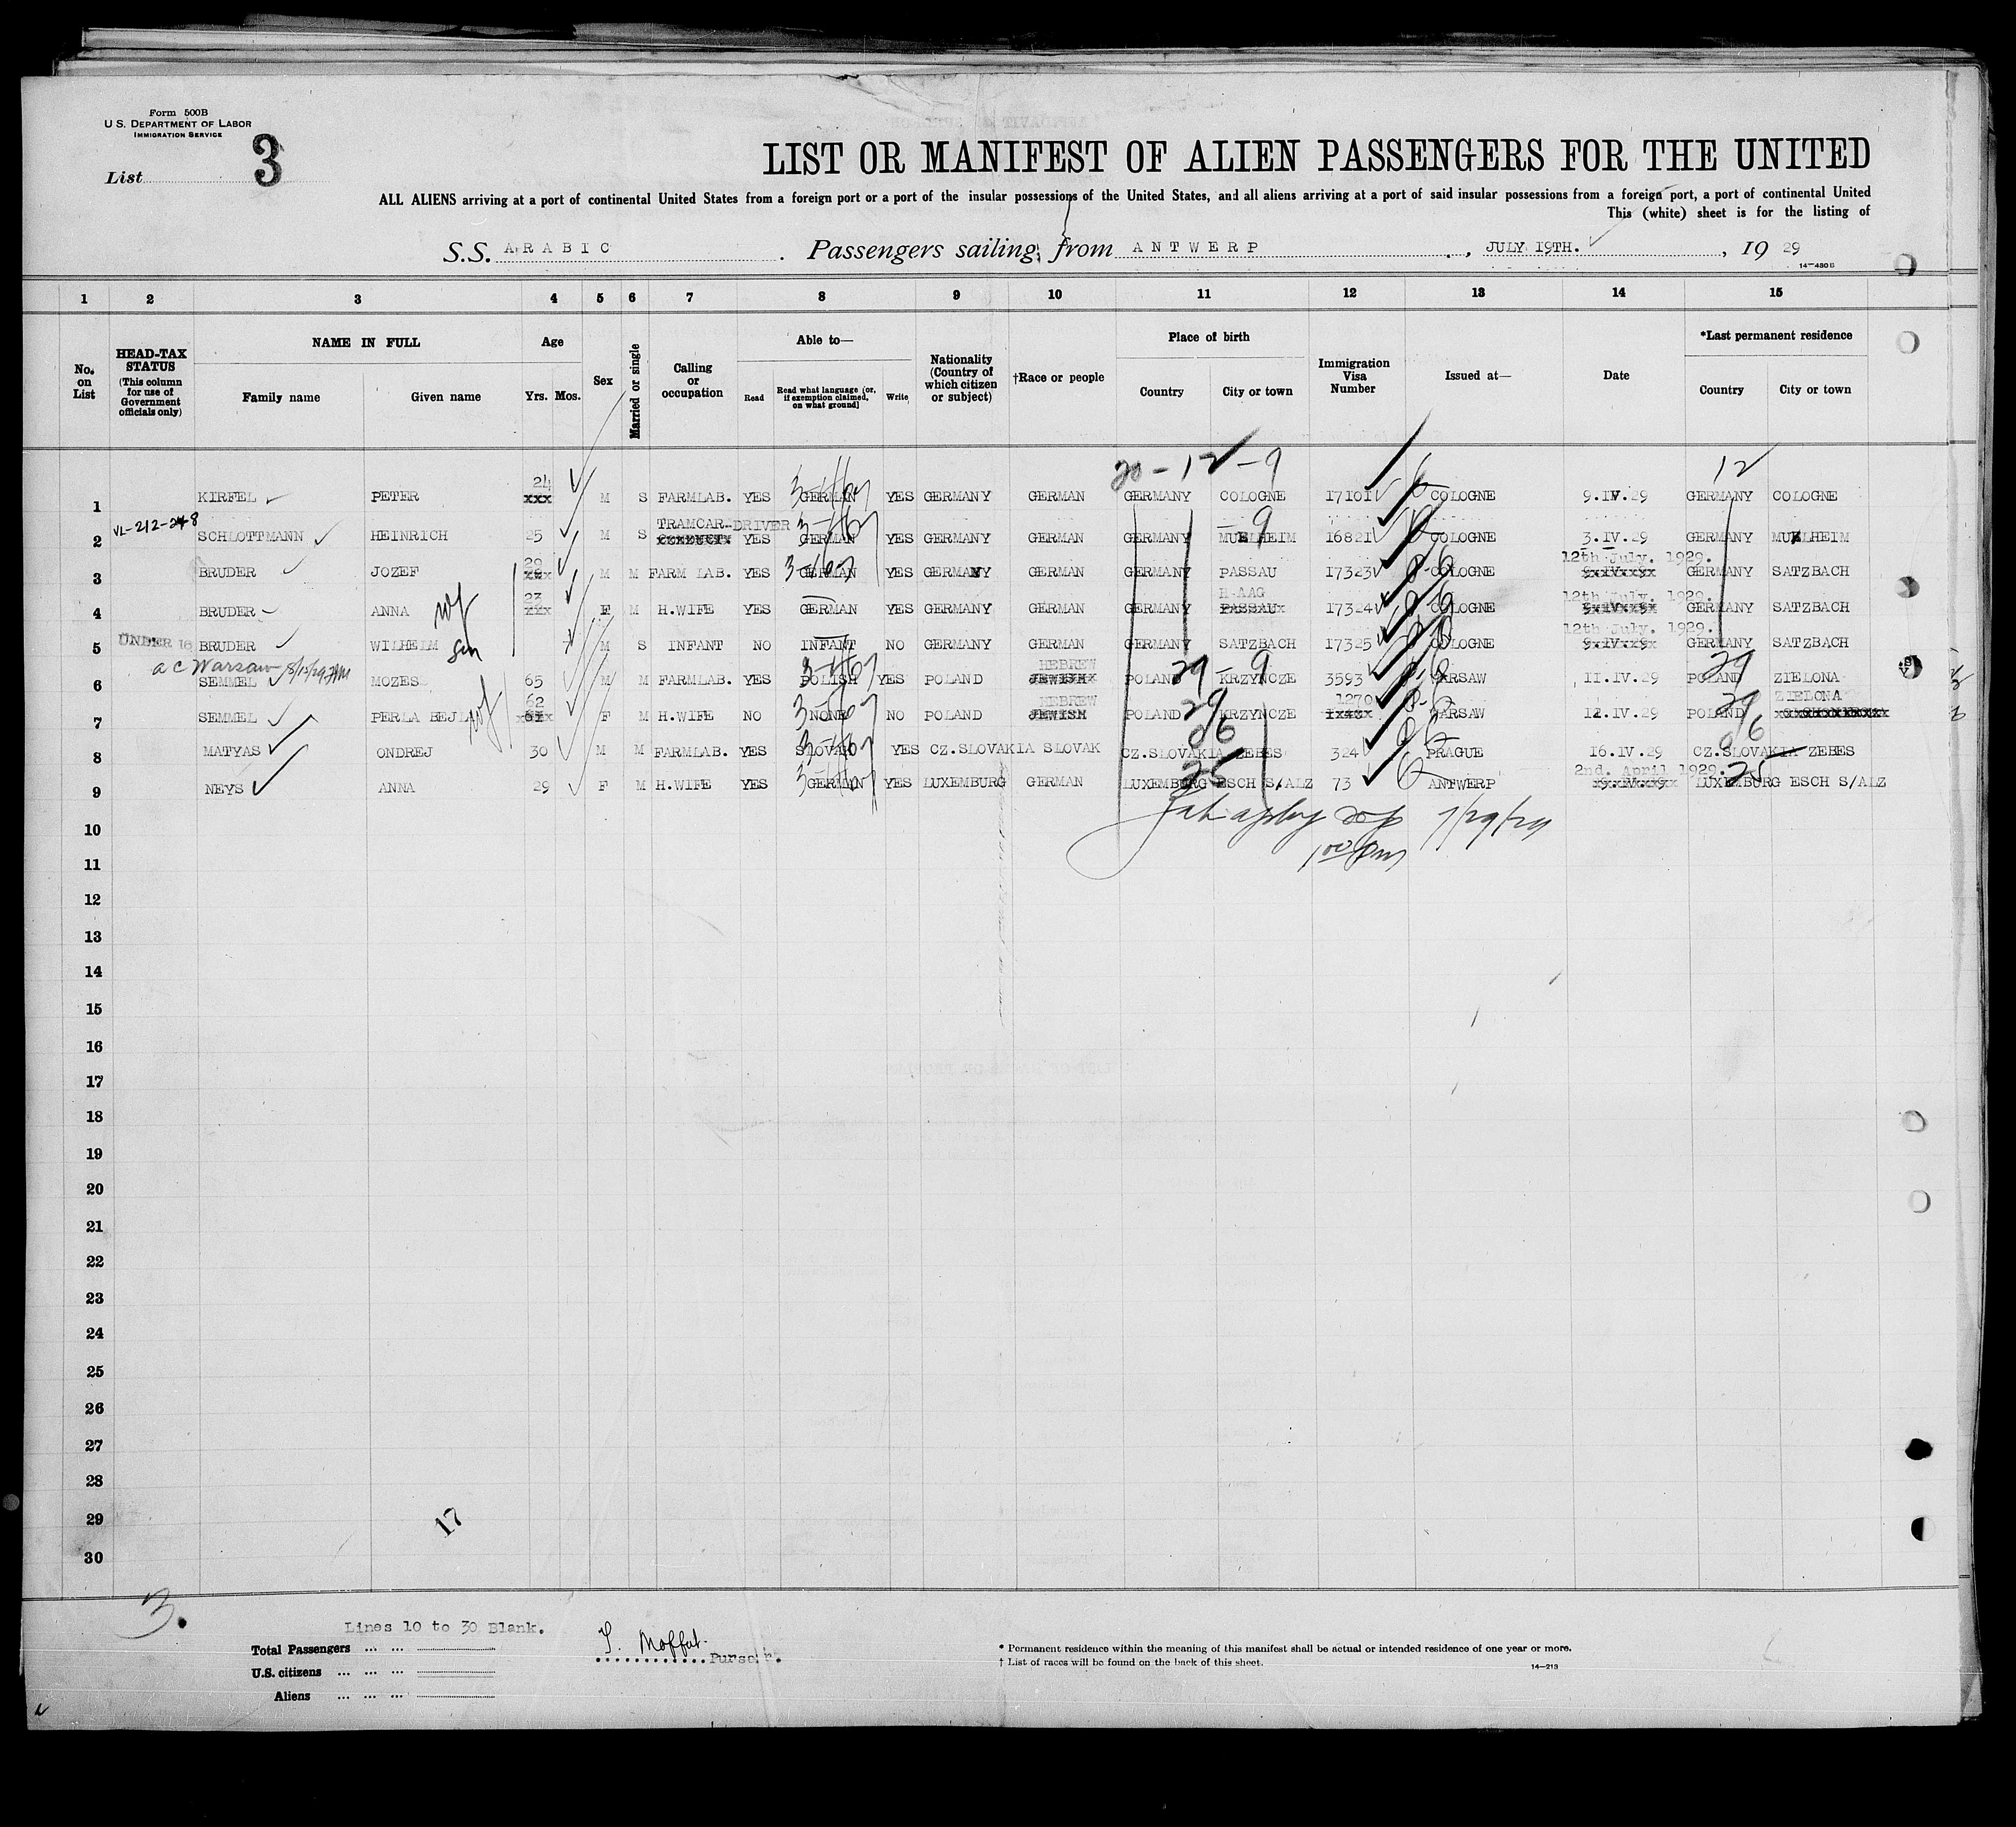 Form 500B
U.S. DEPARTMENT OF LABOR
IMMIGRATION SERVICE
List 3
LIST OR MANIFEST OF ALIEN PASSENGERS FOR THE UNITED
ALL ALIENS arriving at a port of continental United States from a foreign port or a port of the insular possessions of the United States, and all aliens arriving at a port of said insular possessions from a foreign port, a port of continental United
This (white) sheet is for the listing of
S.S. ARABIC . Passengers sailing from ANTWERP , JULY 19TH. , 19 29
14-430B
1 2 3 4 5 6 7 8 9 10 11 12 13 14 15
No. on List
HEAD-TAX STATUS (This column for use of Government officials only)
NAME IN FULL Family name Given name
Age Yrs. Mos.
Sex
Married or single
Calling or occupation
Able to— Read Read what language (or, if exemption claimed, on what ground) Write
Nationality (Country of which citizen or subject)
†Race or people
Place of birth Country City or town
Immigration Visa Number
Issued at—
Date
*Last permanent residence Country City or town
20-12-9 12
1 KIRFEL PETER 24 M S FARMLAB. YES GERMAN YES GERMANY GERMAN GERMANY COLOGNE 17101 COLOGNE 9.IV.29 GERMANY COLOGNE
VL-212-248
2 SCHLOTTMANN HEINRICH 25 M S TRAMCAR-DRIVER YES GERMAN YES GERMANY GERMAN GERMANY MUELHEIM 16821 COLOGNE 3.IV.29 GERMANY MUELHEIM
3 BRUDER JOZEF 29 M M FARM LAB. YES GERMAN YES GERMANY GERMAN GERMANY PASSAU 17323 COLOGNE 12th July. 1929. GERMANY SATZBACH
4 BRUDER ANNA wf 23 F M H.WIFE YES GERMAN YES GERMANY GERMAN GERMANY HAAG PASSAU 17324 COLOGNE 12th July. 1929. GERMANY SATZBACH
5 UNDER 16 BRUDER WILHEIM son M S INFANT NO INFANT NO GERMANY GERMAN GERMANY SATZBACH 17325 COLOGNE 12th July. 1929. GERMANY SATZBACH
a c Warsaw 8/15/29
6 SEMMEL MOZES 65 M M FARMLAB. YES POLISH YES POLAND HEBREW JEWISH POLAND KRZYNCZE 3593 WARSAW 11.IV.29 POLAND ZIELONA
7 SEMMEL PERLA BEJLA wf 62 F M H.WIFE NO NONE NO POLAND HEBREW JEWISH POLAND KRZYNCZE 1270 WARSAW 12.IV.29 POLAND ZIELONA
8 MATYAS ONDREJ 30 M M FARMLAB. YES SLOVAK YES CZ.SLOVAKIA SLOVAK CZ.SLOVAKIA ZEBES 324 PRAGUE 16.IV.29 CZ.SLOVAKIA ZEBES
9 NEYS ANNA 29 F M H.WIFE YES GERMAN YES LUXEMBURG GERMAN LUXEMBURG ESCH S/ALZ 73 ANTWERP 2nd. April 1929. LUXEMBURG ESCH S/ALZ
10 7/29/29
11 1 00 pm
12
13
14
15
16
17
18
19
20
21
22
23
24
25
26
27
28
29 17
30
3.
Lines 10 to 30 Blank.
Total Passengers ... ...
U.S. citizens ... ... ...
Aliens ... ... ...
Moffat.
Purser.
* Permanent residence within the meaning of this manifest shall be actual or intended residence of one year or more.
† List of races will be found on the back of this sheet.
14-213